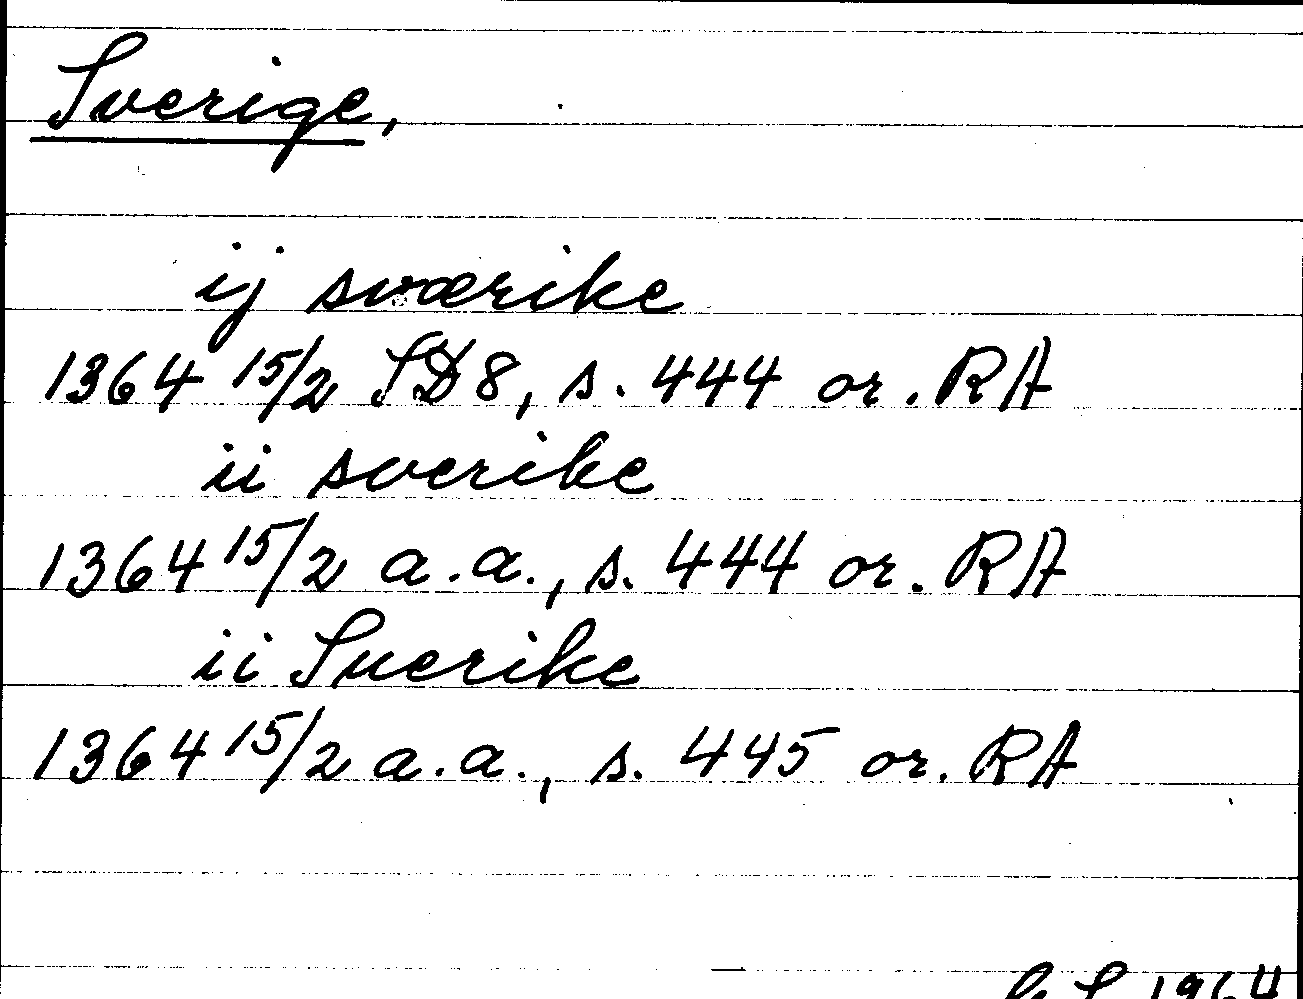 Sverige,
ij swærike
1364 15/2 SD8, s. 444 or. RA
ii sverike
1364 15/2 a.a., s. 444 or. RA
ii Suerike
1364 15/2 a.a., s. 445 or. RA
1964